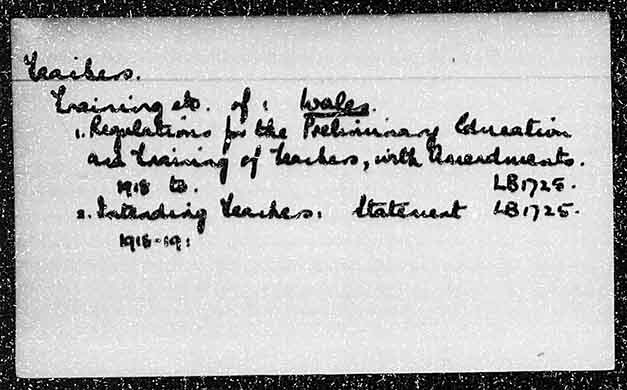 Teachers.
Training etc. of: Wales.
1. Regulations for the Preliminary Education
and Training of Teachers, with Amendments.
1918 to. LB1725.
2. Intending Teachers: Statement LB1725.
1918-19: